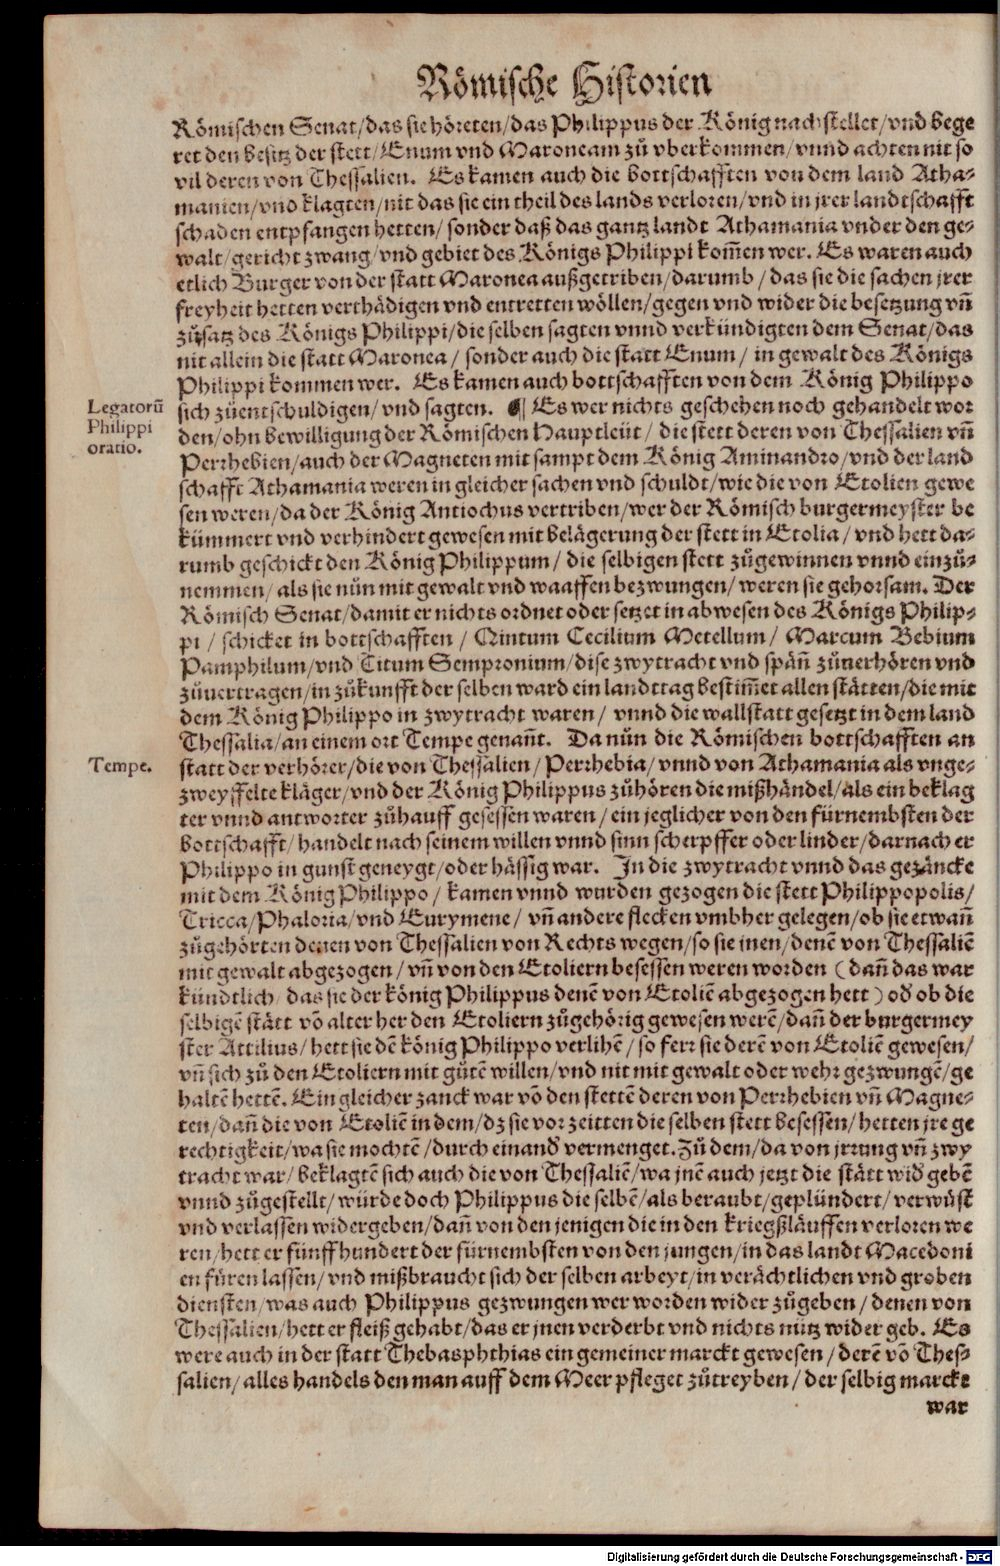 Römische Historien
Römischen Senat/das sie höreten/das Philippus der König nachstellet/vnd bege
ret den besitz der stett/Enum vnd Maroneam zů vberkommen/vnnd achten nit so
vil deren von Thessalien. Es kamen auch die bottschafften von dem land Atha-
manien/vnd klagten/nit das sie ein theil des lands verloren/vnd in jrer landtschafft
schaden entpfangen hetten/ sonder daß das gantz landt Athamania vnder den ge-
walt/gericht zwang/vnd gebiet des Königs Philippi kom̃en wer. Es waren auch
etlich Burger von der statt Maronea außgetriben/darumb/das sie die sachen jrer
freyheit hetten verthädigen vnd entretten wöllen/gegen vnd wider die besetzung vñ
zůsatz des Königs Philippi/die selben sagten vnnd verkündigten dem Senat/das
nit allein die statt Maronea/ sonder auch die statt Enum/ in gewalt des Königs
Philippi kommen wer. Es kamen auch bottschafften von dem König Philippo
Legatorũ
Philippi
oratio.
sich zůentschuldigen/vnd sagten. ¶ Es wer nichts geschehen noch gehandelt wor
den/ohn bewilligung der Römischen Hauptleüt/ die stett deren von Thessalien vñ
Perrhebien/auch der Magneten mit sampt dem König Aminandro/vnd der land
schafft Athamania weren in gleicher sachen vnd schuldt/wie die von Etolien gewe
sen weren/da der König Antiochus vertriben/wer der Römisch burgermeyster be
kümmert vnd verhindert gewesen mit belägerung der stett in Etolia/ vnd hett da-
rumb geschickt den König Philippum/ die selbigen stett zůgewinnen vnnd einzů-
nemmen/ als sie nůn mit gewalt vnd waaffen bezwungen/ weren sie gehorsam. Der
Römisch Senat/damit er nichts ordnet oder setzet in abwesen des Königs Philip-
pi/ schicket in bottschafften/ Quintum Cecilium Metellum/ Marcum Bebium
Pamphilum/vnd Titum Sempronium/dise zwytracht vnd spän̄ zůuerhören vnd
zůuertragen/in zůkunfft der selben ward ein landttag bestim̃et allen stätten/die mit
dem König Philippo in zwytracht waren/ vnnd die wallstatt gesetzt in dem land
Thessalia/an einem ort Tempe genan̄t. Da nůn die Römischen bottschafften an
Tempe.
statt der verhörer/die von Thessalien/Perrhebia/vnnd von Athamania als vnge-
zweyffelte kläger/vnd der König Philippus zůhören die mißhändel/als ein beklag
ter vnnd antworter zůhauff gesessen waren/ein jeglicher von den fürnembsten der
bottschafft/handelt nach seinem willen vnnd sinn scherpffer oder linder/darnach er
Philippo in gunst geneygt/oder hässig war. In die zwytracht vnnd das gezäncke
mit dem König Philippo/ kamen vnnd wurden gezogen die stett Philippopolis/
Tricca/Phaloria/vnd Eurymene/ vñ andere flecken vmbher gelegen/ob sie etwan̄
zůgehörten denen von Thessalien von Rechts wegen/so sie jnen/denē von Thessaliē
mit gewalt abgezogen/vñ von den Etoliern besessen weren worden (dan̄ das war
kündtlich/das sie der könig Philippus denē von Etoliē abgezogen hett) od̕ ob die
selbigē stätt vō alter her den Etoliern zůgehörig gewesen werē/dan̄ der burgermey
ster Attilius/hett sie dē könig Philippo verlihē/so ferr sie derē von Etoliē gewesen/
vñ sich zů den Etoliern mit gůtē willen/vnd nit mit gewalt oder wehr gezwungē/ge
haltē hettē. Ein gleicher zanck war vō den stettē deren von Perrhebien vñ Magne-
ten/dan̄ die von Etoliē in dem/dz sie vor zeitten die selben stett besessen/hetten jre ge
rechtigkeit/wa sie mochtē/durch einand̕ vermenget. Zů dem/da von jrrung vñ zwy
tracht war/beklagtē sich auch die von Thessaliē/wa jnē auch jetzt die stätt wid̕ gebē
vnnd zůgestellt/würde doch Philippus die selbē/als beraubt/geplündert/verwüst
vnd verlassen widergeben/dan̄ von den jenigen die in den kriegßläuffen verloren we
ren/hett er fünffhundert der fürnembsten von den jungen/in das landt Macedoni
en fůren lassen/vnd mißbraucht sich der selben arbeyt/in verächtlichen vnd groben
diensten/was auch Philippus gezwungen wer worden wider zůgeben/denen von
Thessalien/hett er fleiß gehabt/das er jnen verderbt vnd nichts nütz wider geb. Es
were auch in der statt Thebasphthias ein gemeiner marckt gewesen/derē vō Thes-
salien/alles handels den man auff dem Meer pfleget zůtreyben/ der selbig marckt
war
Digitalisierung gefördert durch die Deutsche Forschungsgemeinschaft - DFG